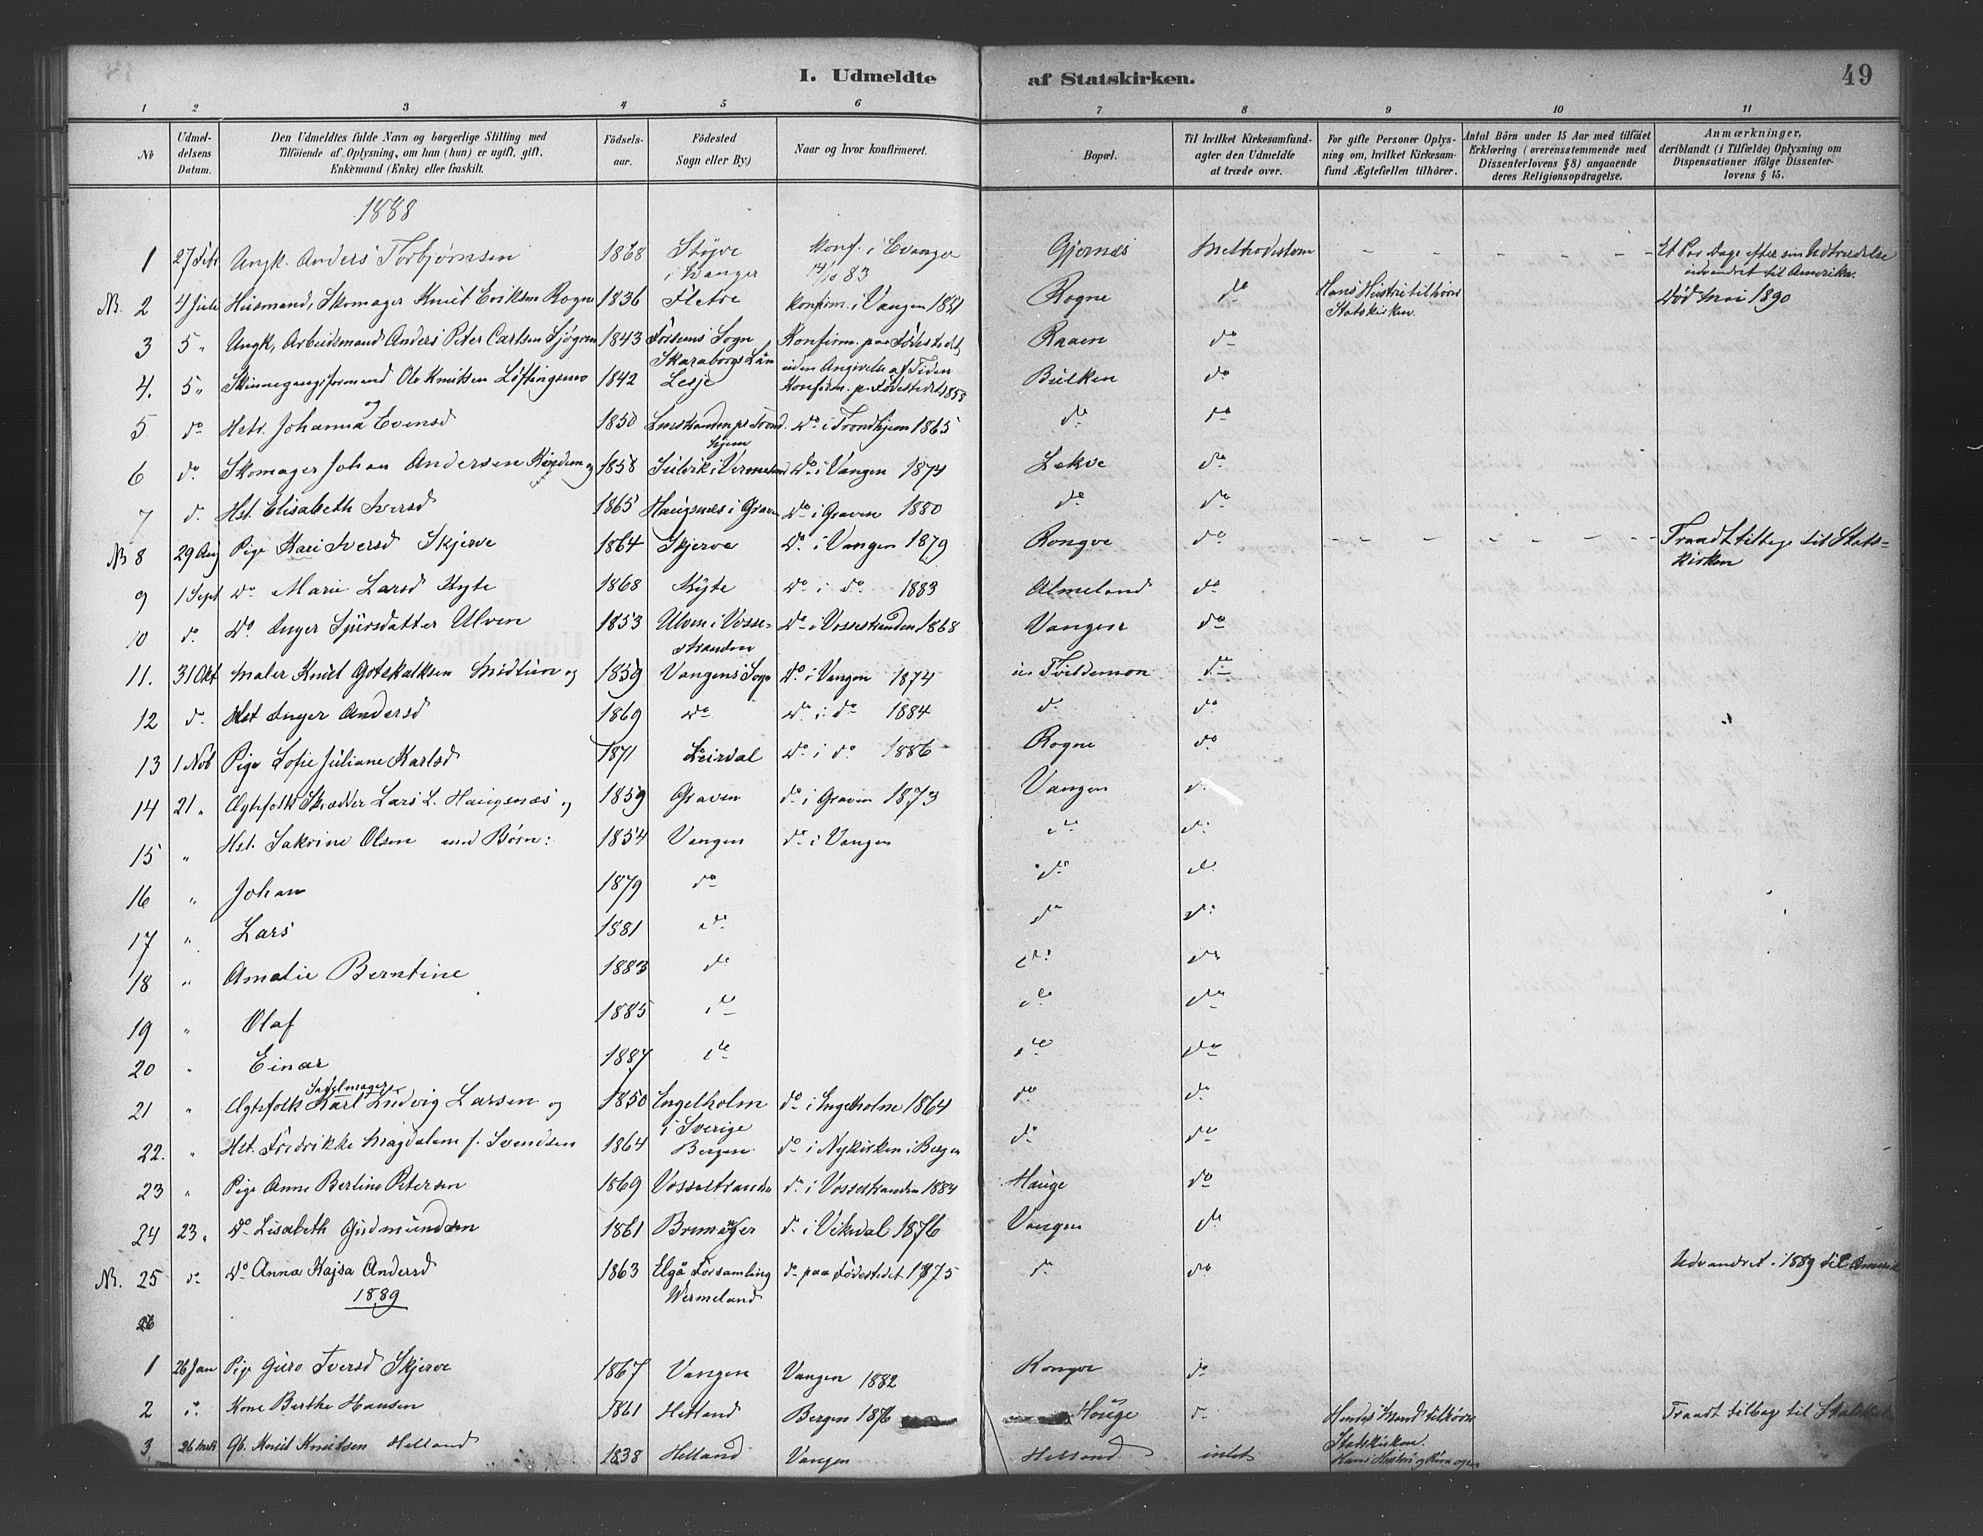 I. Udmeldte af Statskirken. 49
1 2 3 4 5 6 7 8 9 10 11
No
Udmel-
delsens
Datum.
Den Udmeldtes fulde Navn og borgerlige Stilling med
Tilføiende af Oplysning, om han (hun) er ugift, gift,
Enkemand (Enke) eller fraskilt.
Fødsels-
aar.
Fødested
Sogn eller By.)
Naar og hvor konfirmeret.
Bopæl.
Til hvilket Kirkesamfund
agter den Udmeldte
at træde over.
For gifte Personer Oplys-
ning om, hvilket Kirkesam-
fund Ægtefællen tilhører.
Antal Børn under 15 Aar med tilføiet
Erklæring (overensstemmende med
Dissenterloven § 8) angaaende
deres Religionsopdragelse.
Anmærkninger,
deriblandt (i Tilfælde) Oplysning om
Dispensationer ifølge Dissenter-
lovens § 15.
1888
1 27 Febr Ungk. Anders Torbjørnsen 1868 Støjve i Evanger konf. i Evanger 14/10 83 Gjernæs Methodisterne Et Par Dage efter sin Udtrædelse udvandret til Amerika.
NB. 2 4 Juli Husmand, Skomager Knut Eriksen Rogne 1836 Fletre konfirm. i Vangen 1851 Rogne do Hans Hustru tilhører Statskirken. Død Mai 1890
3 5 " Ungk, Arbeidsmand Anders Peter Carlsen Sjøgren 1843 Forsems Sogn Skaraborgs Län Konfirm. paa Fødestedet, uden Angivelse af Tiden Raaen do
4. 5 " Skinnegangsformand Ole Knutsen Løftingsmo 1842 Lesje Konfirm. p. Fødestedet 1858 Bulken do
5 do Hstr. Johanna Evensd 1850 Leerstranden pr Trondhjem do i Trondhjem 1865 do do
6 do Skomager Johan Andersen og 1858 Silvik i Vermeland do i Vangen 1874 Lekve do
7 do Hst. Elisabeth Iversd 1865 Haugsnæs i Graven do i Graven 1880 do do
NB 8 29 Aug Pige Kari Iversd Skjerve 1864 Skjerve do i Vangen 1879 Rongve do Traadt tilbage til Statskirken
9 1 Sept do Marie Larsd Kyte 1868 Kyte do i do 1883 Almeland do
10 do do Inger Sjursdatter Ulven 1853 Ulven i Vossestranden do i Vossestranden 1868 Vangen do
11. 31 Okt Maler Knut Gotskalksen Midtun og 1859 Vangens Sogn do i Vangen 1874 u. Tvildemoen do
12 do Hst Inger Andersd 1869 do do i do 1884 do do
13 1 Nob Pige Sofie Juliane Karlsd 1871 Leirdal do i do 1886 Rogne do
14 21 " Ægtefolk Skrædder Lars L. Haugsnæs og 1859 Graven do i Graven 1873 Vangen do
15 " Hst. Sakrine Olsen med Børn: 1854 Vangen do i Vangen do do
16 " Johan 1879 do do do
17 " Lars 1881 do do do
18 " Amalie Berntine 1883 do do do
19 " Olaf 1885 do do do
20 " Einar 1887 do do do
21 " Ægtefolk Sadelmager Karl Ludvig Larsen og 1850 Engelholm i Sverige do i Engelholm 1864 do do
22. " Hst. Fredrikke Magdalene f. Svendsen 1864 Bergen do i Nykirken i Bergen do do
23 " Pige Anne Bertine Petersen 1869 Vossestranden do i Vossestranden 1884 Hauge do
24 23 " do Lisabeth Gudmundsen 1861 Bremanger do i Vikedal 1876 Vangen do
NB. 25 do do Anna Kajsa Andersd 1863 Elgå Forsamling Wermeland do paa Fødestedet 1875 do do Udvandret i 1889 til Amerik
1889
26
1 26 Jan Pige Guro Iversd Skjerve 1867 Vangen Vangen 1882 Rongve do
2 do Kone Berthe Hansen 1861 Helland Bergen 1876 Hauge do Hendes Mand tilhører Statskirken. Traadt tilbage til Statskirk
3 26 Gb. Knut Knutsen Helland 1838 Helland Vangen Helland intet Hans Hustru og Børn